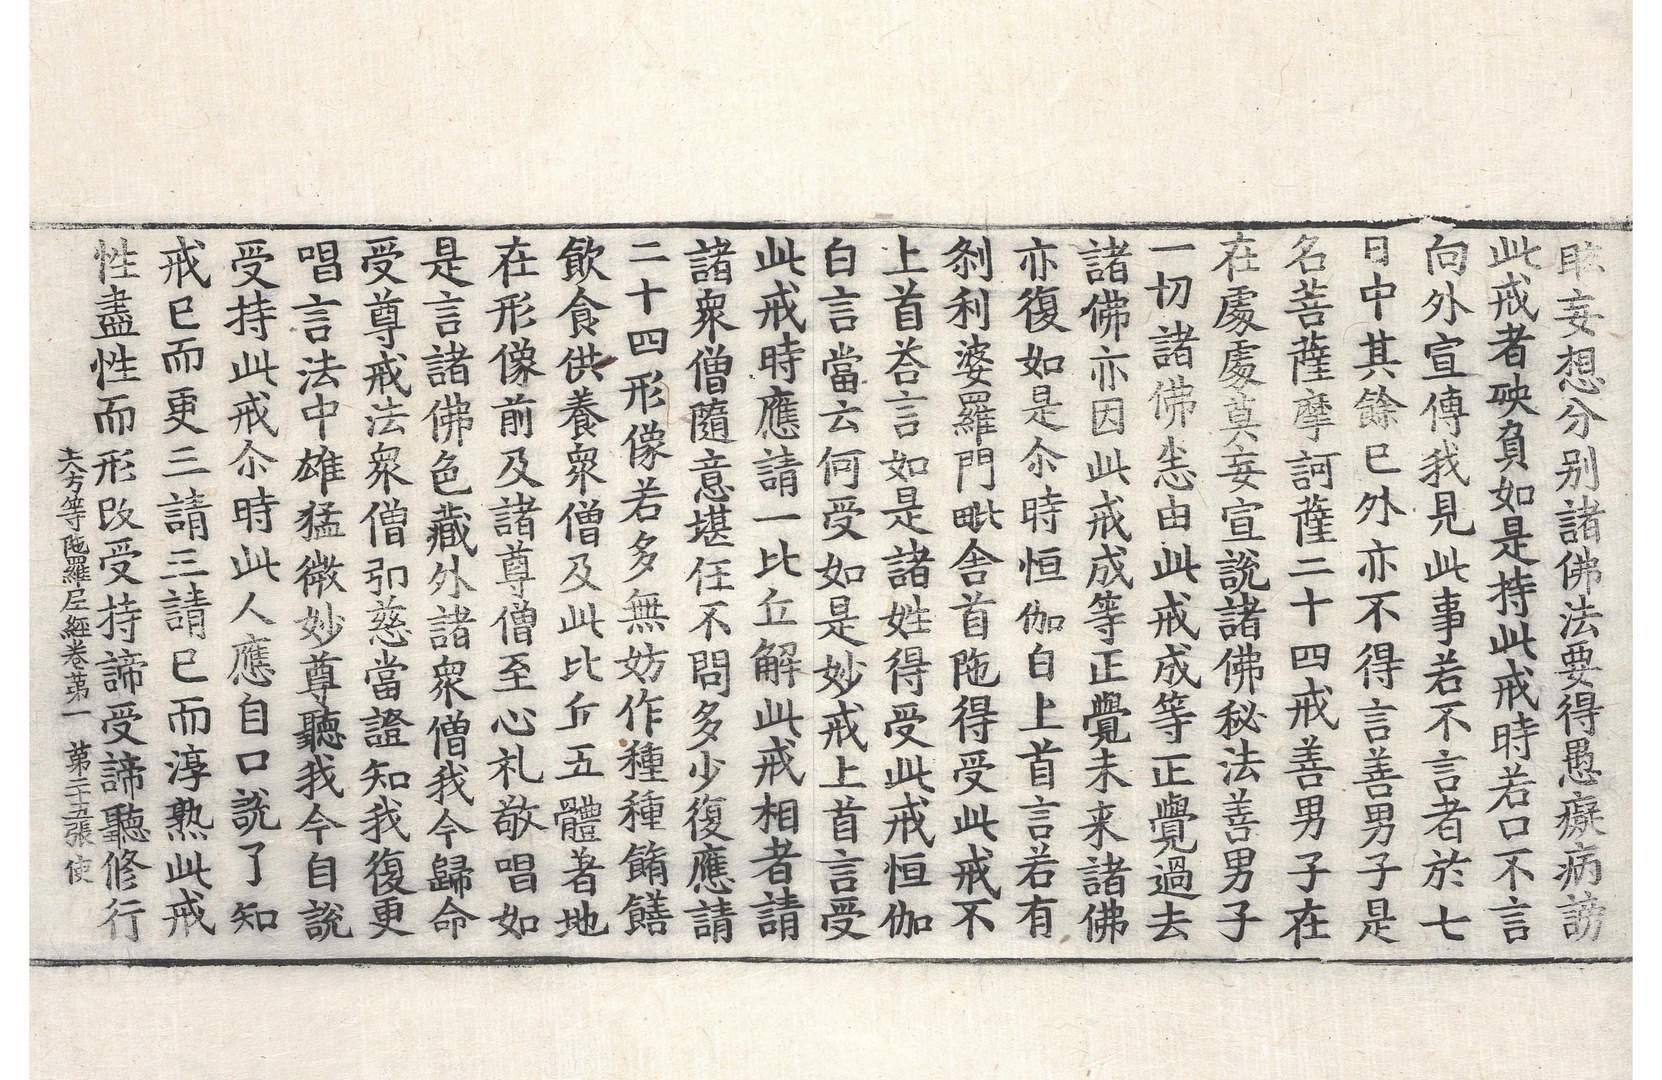 眂妄想分別諸佛法要得愚癡病謗
此戒者殃負如是持此戒時若口不言
向外宣傳我見此事若不言者於七
日中其餘已外亦不得言善男子是
名菩薩摩訶薩二十四戒善男子在
在處處莫妄宣說諸佛秘法善男子
一切諸佛悉由此戒成等正覺過去
諸佛亦因此戒成等正覺未来諸佛
亦復如是尒時恒伽白上首言若有
剎利婆羅門毗舍首陁得受此戒不
上首荅言如是諸姓得受此戒恒伽
白言當云何受如是妙戒上首言受
此戒時應請一比丘解此戒相者請
諸衆僧隨意堪任不問多少復應請
二十四形像若多無妨作種種餚饍
飲食供養衆僧及此比丘五體著地
在形像前及諸尊僧至心礼敬唱如
是言諸佛色藏外諸衆僧我今歸命
受尊戒法衆僧卬慈當證知我復更
唱言法中雄猛微妙尊聽我今自說
受持此戒尒時此人應自口說了知
戒已而更三請三請已而淳熟此戒
性盡性而形改受持諦受諦聽修行
大方等陁羅尼經卷第一 第二十五張 使